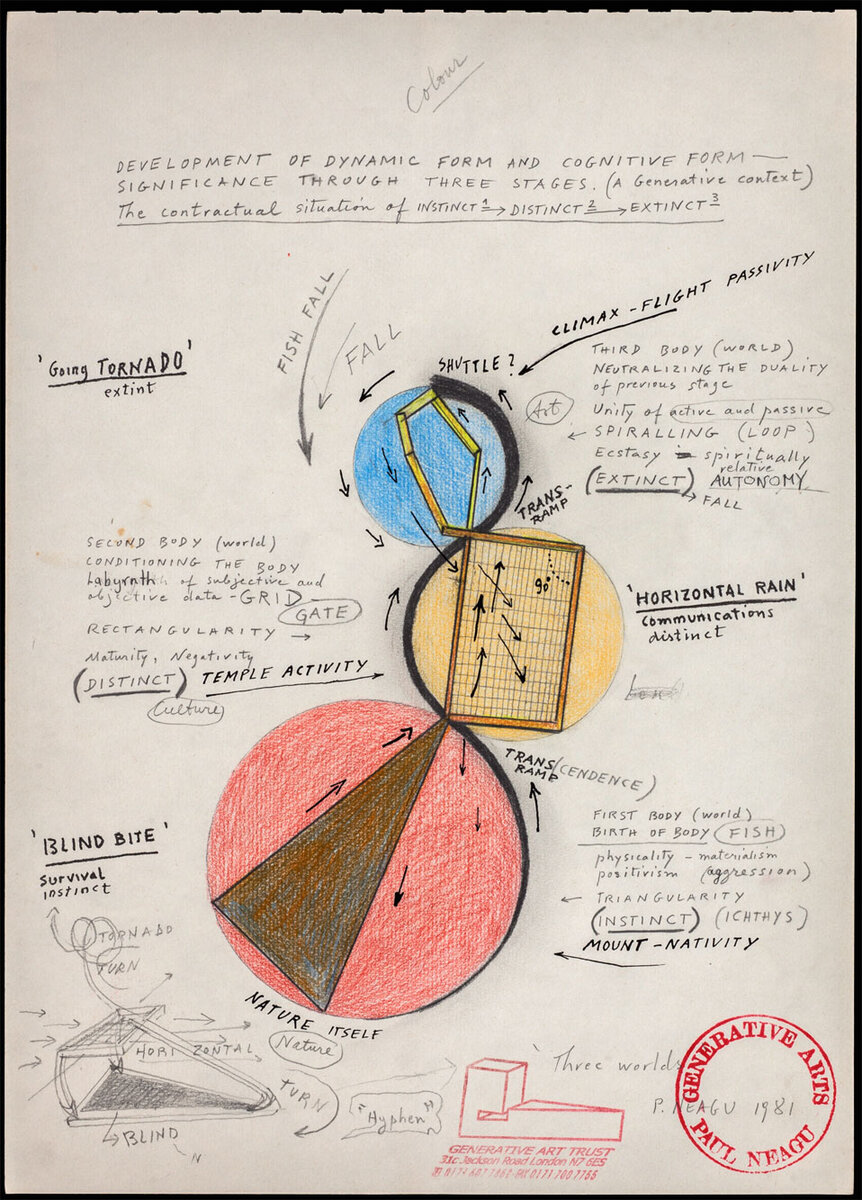 Colour
DEVELOPMENT OF DYNAMIC FORM AND COGNITIVE FORM —
SIGNIFICANCE THROUGH THREE STAGES. (A Generative context)
The contractual situation of INSTINCT 1 → DISTINCT 2 → EXTINCT 3
CLIMAX - FLIGHT PASSIVITY
FISH FALL
FALL
SHUTTLE?
'Going TORNADO'
extint
THIRD BODY (WORLD)
NEUTRALIZING THE DUALITY
of previous stage
Art
Unity of active and passive
← SPIRALLING (LOOP)
Ecstasy spiritually
relative
(EXTINCT) AUTONOMY
→ FALL
TRANS-
RAMP
SECOND BODY (world)
CONDITIONING THE BODY
Labyrnth of subjective and
objective data - GRID -
GATE
RECTANGULARITY →
Maturity, Negativity
(DISTINCT) TEMPLE ACTIVITY
Culture
90°
'HORIZONTAL RAIN'
communications
distinct
TRANS (CENDENCE)
RAMP
FIRST BODY (world)
BIRTH OF BODY (FISH)
physicality - materialism
positivism (aggression)
← TRIANGULARITY
(INSTINCT) (ICHTHYS)
MOUNT - NATIVITY
'BLIND BITE'
Survival
instinct
NATURE ITSELF
Nature
TORNADO
TURN
HORIZONTAL
TURN
BLIND
N
"Hyphen"
'Three worlds
P. NEAGU 1981
GENERATIVE ARTS
PAUL NEAGU
GENERATIVE ART TRUST
31c Jackson Road London N7 6ES
FAX 0171 700 7755